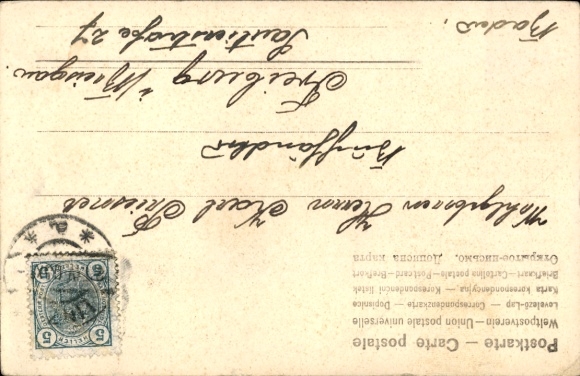 Postkarte — Carte postale
Weltpostverein — Union postale universelle
Levelező-Lap — Correspondenzkarte — Dopisnica
Karta korespondencyjna, — Korespondenční lístek
Briefkaart — Cartolina postale — Postcard — Brefkort
Открытое письмо. Дописна карта
Wohlgeboren Herrn Karl
Buchhändler
Freiburg i/Breisgau
27
Baden.
5 5
5 5